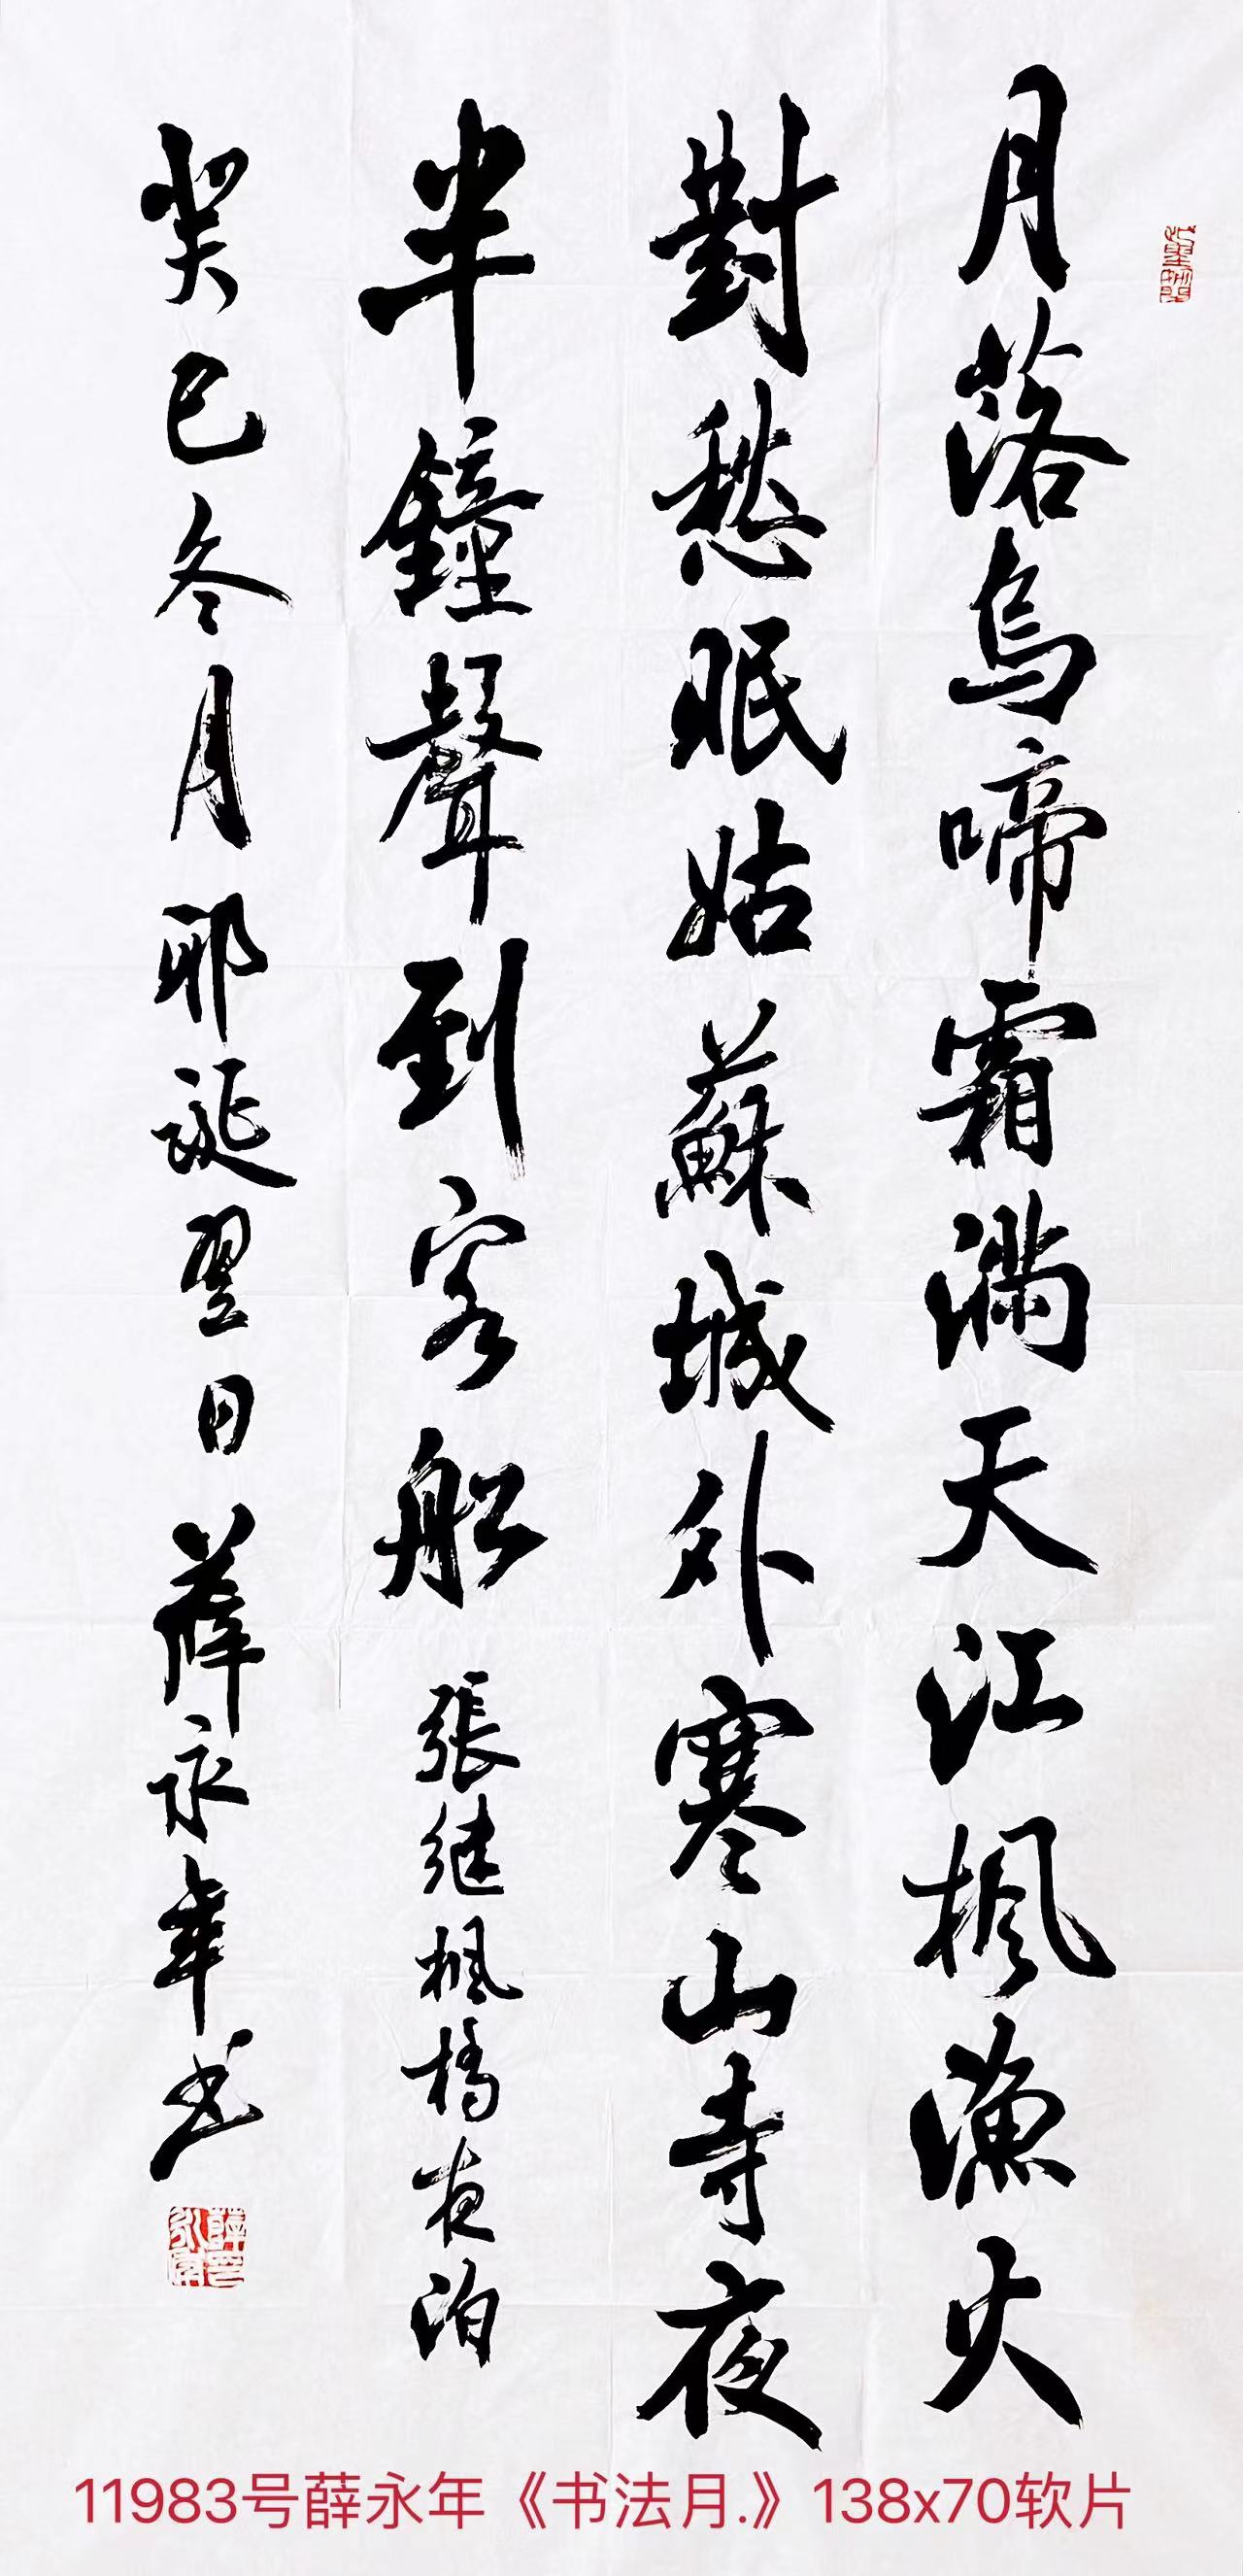 月落烏啼霜滿天江楓漁火
對愁眠姑蘇城外寒山寺夜
半鐘聲到客船 張继楓橋夜泊
癸巳冬月耶诞翌日薛永年书
薛永年印
11983号薛永年《书法月.》138x70软片